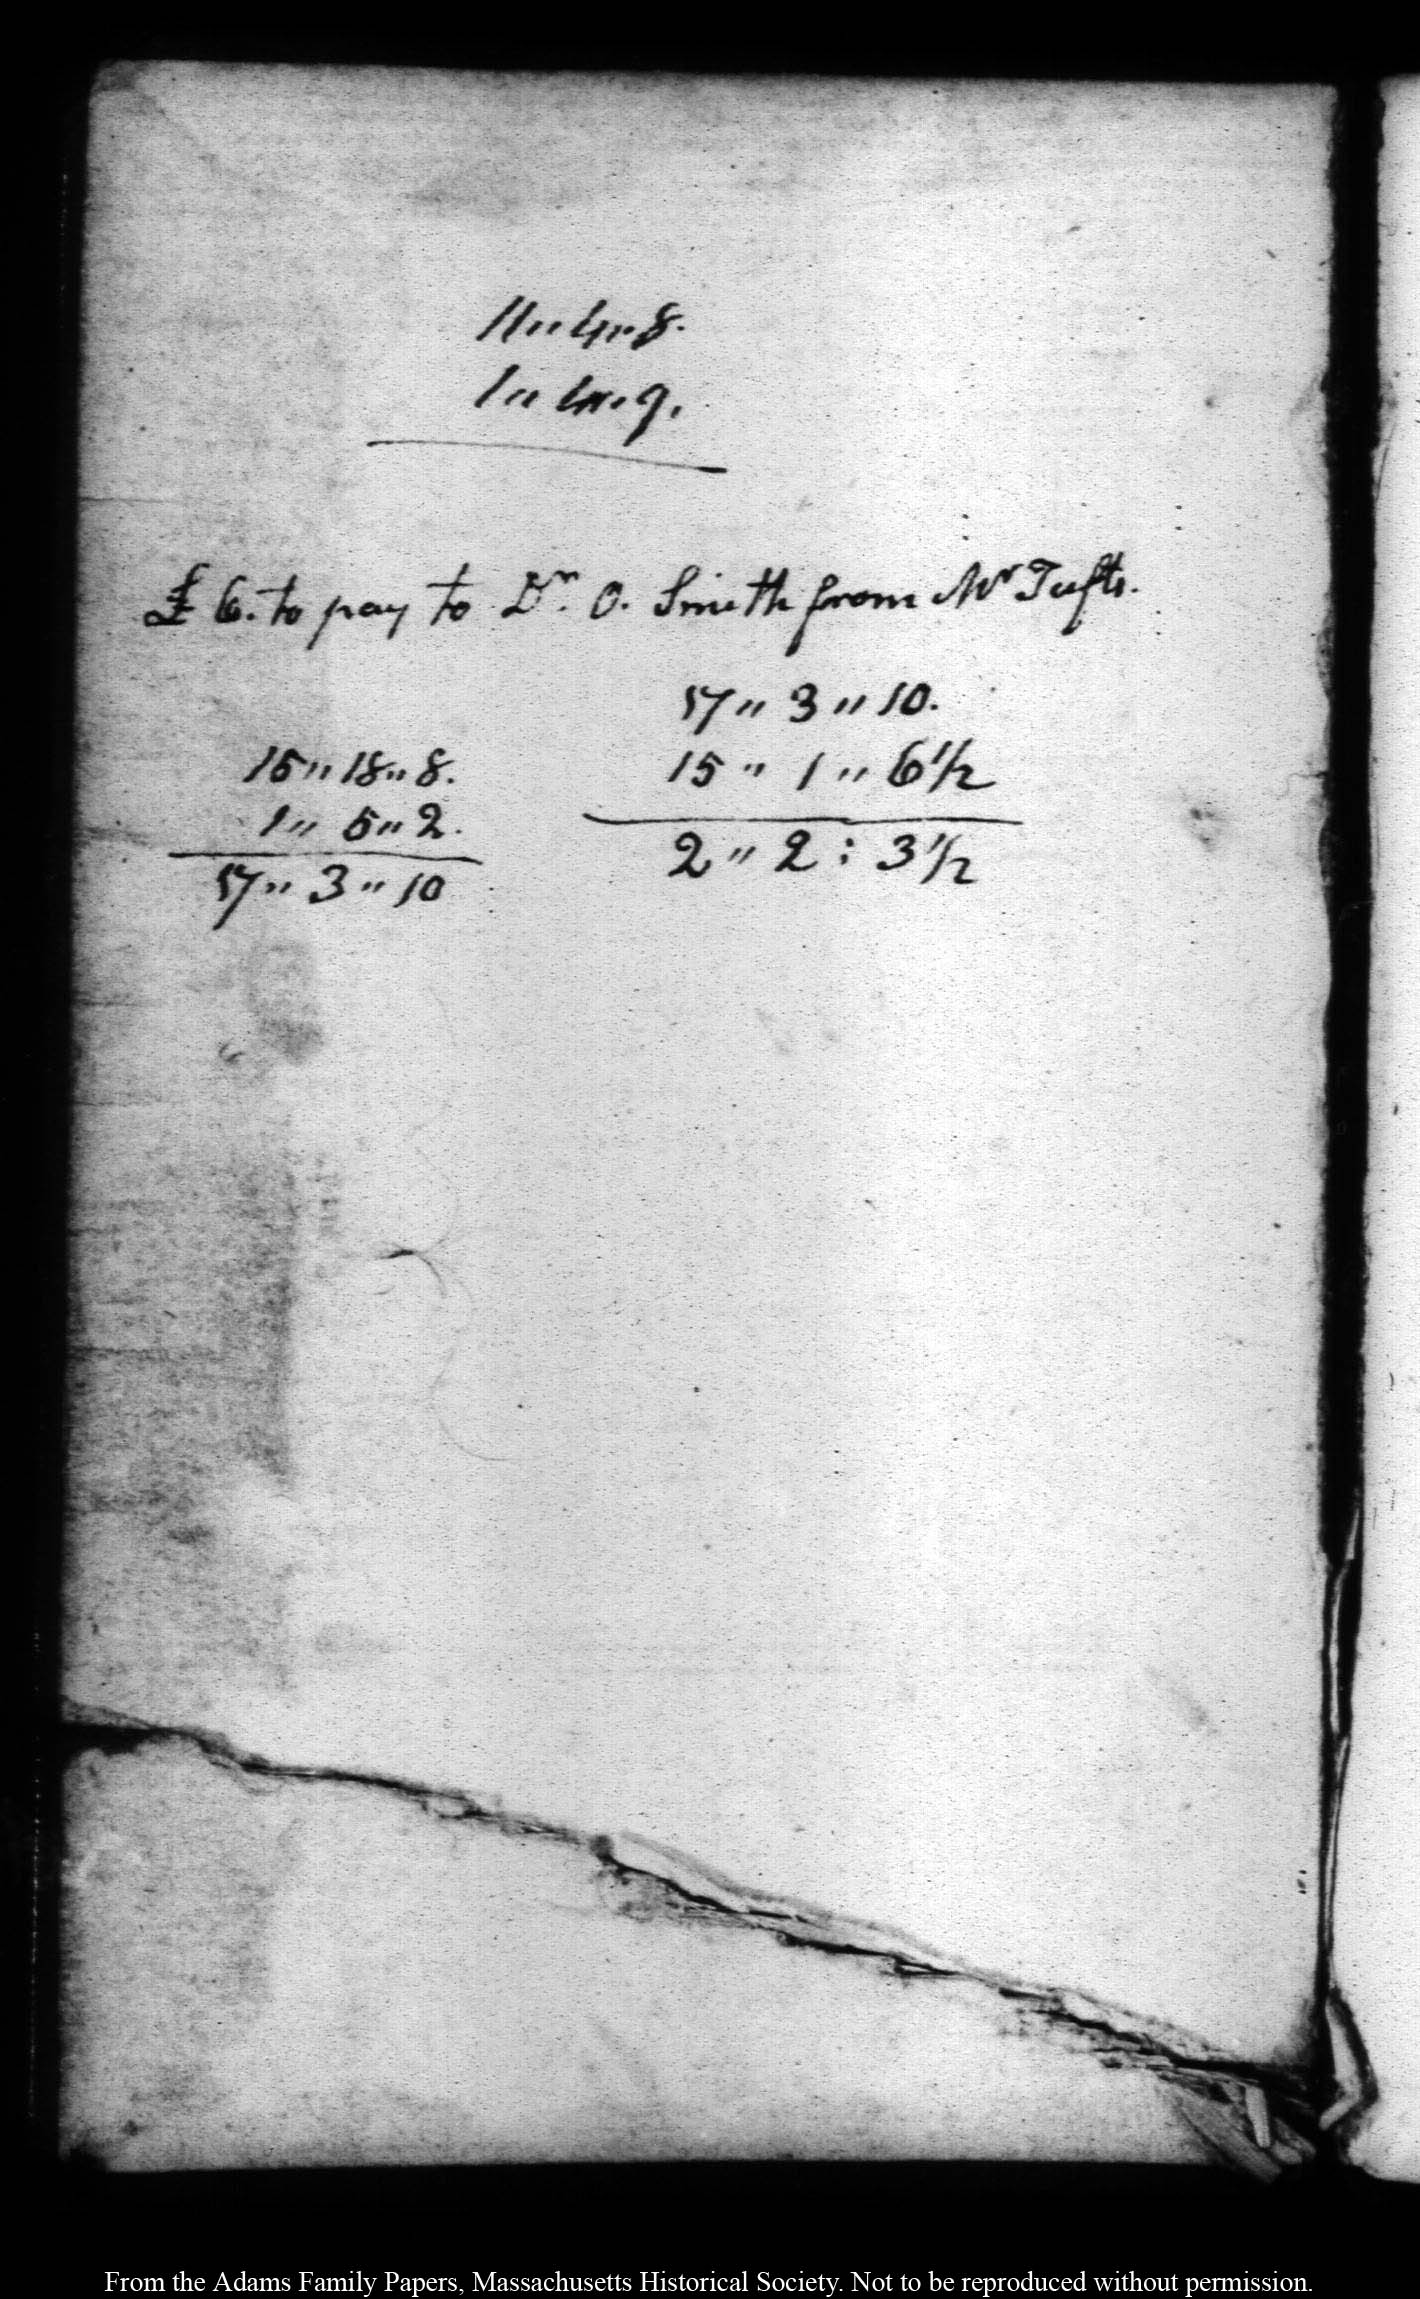 11 " 4 " 8.
1 " 4 " 9.
£ 6. to pay to Dr. O. Smith from Mr Tufts.
17 " 3 " 10.
15 " 18 " 8.
15 " 1 " 6 1/2
1 " 5 " 2.
2 " 2 : 3 1/2
17 " 3 " 10
From the Adams Family Papers, Massachusetts Historical Society. Not to be reproduced without permission.